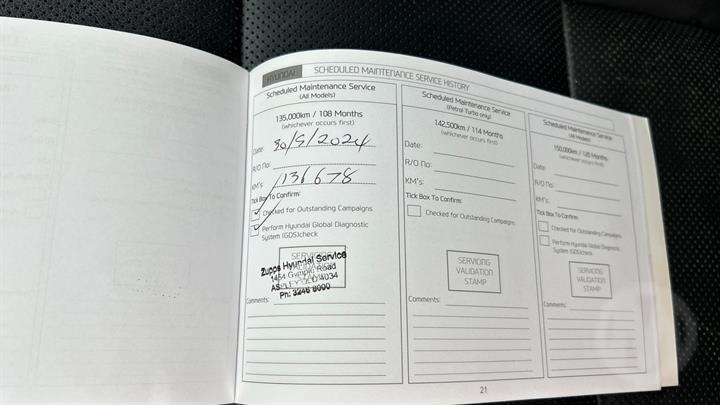 HYUNDAI SCHEDULED MAINTENANCE SERVICE HISTORY
Scheduled Maintenance Service
(All Models)
135,000km / 108 Months
(whichever occurs first)
Date: 30/9/2024
R/O No:
KM's: 136678
Tick Box To Confirm:
Checked for Outstanding Campaigns
Perform Hyundai Global Diagnostic
System (GDS)check
SERVICING
VALIDATION
STAMP
Zupps Hyundai Service
1454 Gympie Road
ASPLEY QLD 4034
Pn: 3246 8000
Comments:
Scheduled Maintenance Service
(Petrol Turbo only)
142,500km / 114 Months
(whichever occurs first)
Date:
R/O No:
KM's:
Tick Box To Confirm:
Checked for Outstanding Campaigns
SERVICING
VALIDATION
STAMP
Comments:
Scheduled Maintenance Service
(All Models)
150,000km / 120 Months
(whichever occurs first)
Date:
R/O No:
KM's:
Tick Box To Confirm:
Checked for Outstanding Campaigns
Perform Hyundai Global Diagnostic
System (GDS)check
SERVICING
VALIDATION
STAMP
Comments:
21